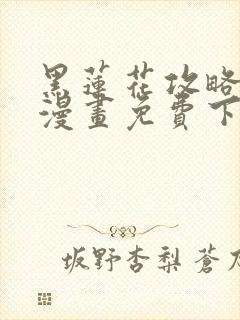 黑蓮花攻略
漫畫免費下
坂野杏梨蒼